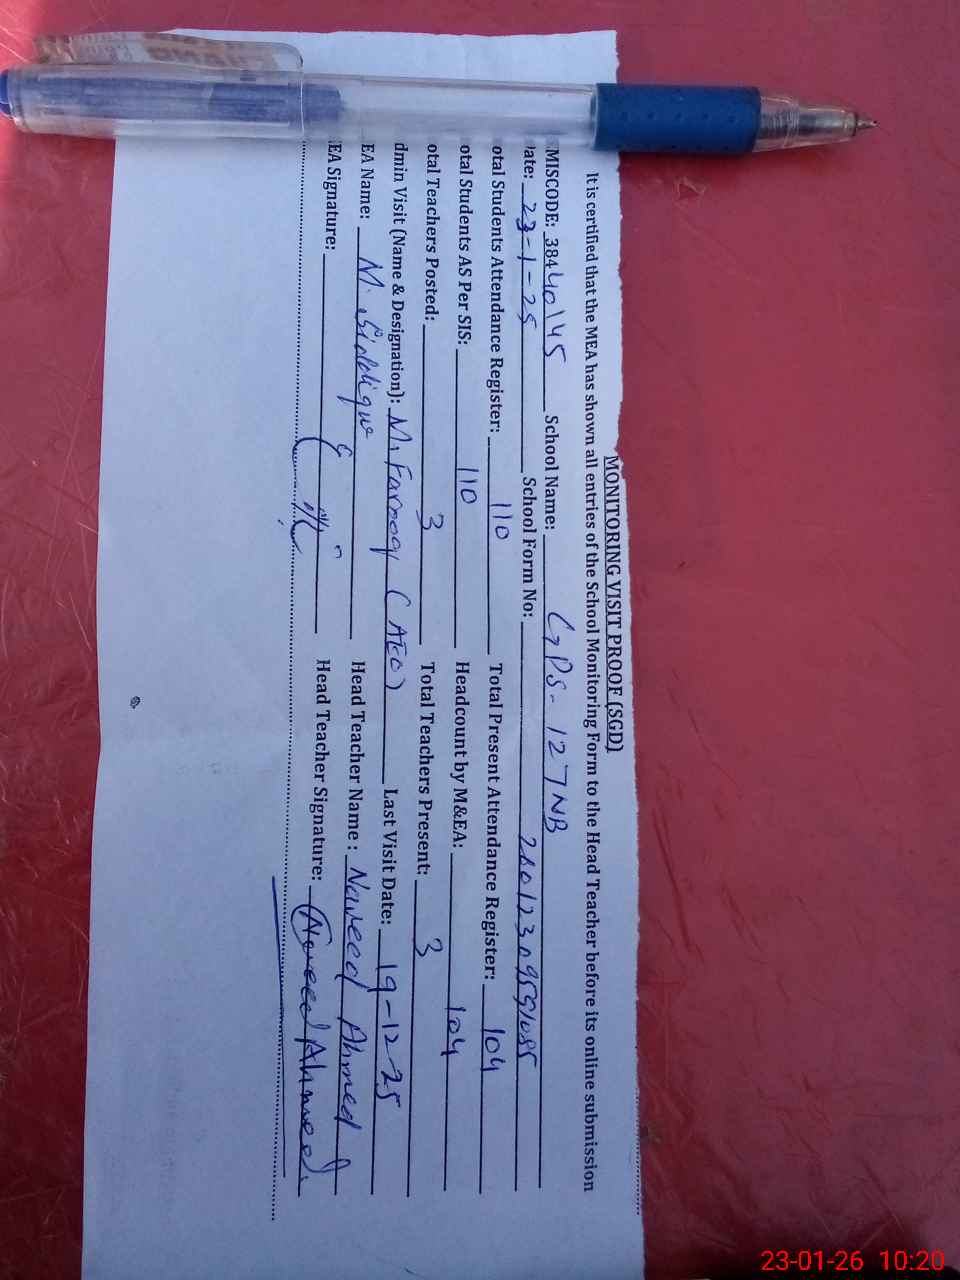 MONITORING VISIT PROOF (SGD)
It is certified that the MEA has shown all entries of the School Monitoring Form to the Head Teacher before its online submission
MISCODE: 38440145 School Name: GPS-127NB
ate: 23-1-25 School Form No:
otal Students Attendance Register: 110 Total Present Attendance Register: 104
otal Students AS Per SIS: 110 Headcount by M&EA: 104
otal Teachers Posted: 3 Total Teachers Present: 3
dmin Visit (Name & Designation): M. Farooq (AEO) Last Visit Date: 19-12-25
EA Name: M. Siddique Head Teacher Name : Naveed Ahmed
EA Signature: Head Teacher Signature: Naveed Ahmed.
23-01-26 10:20